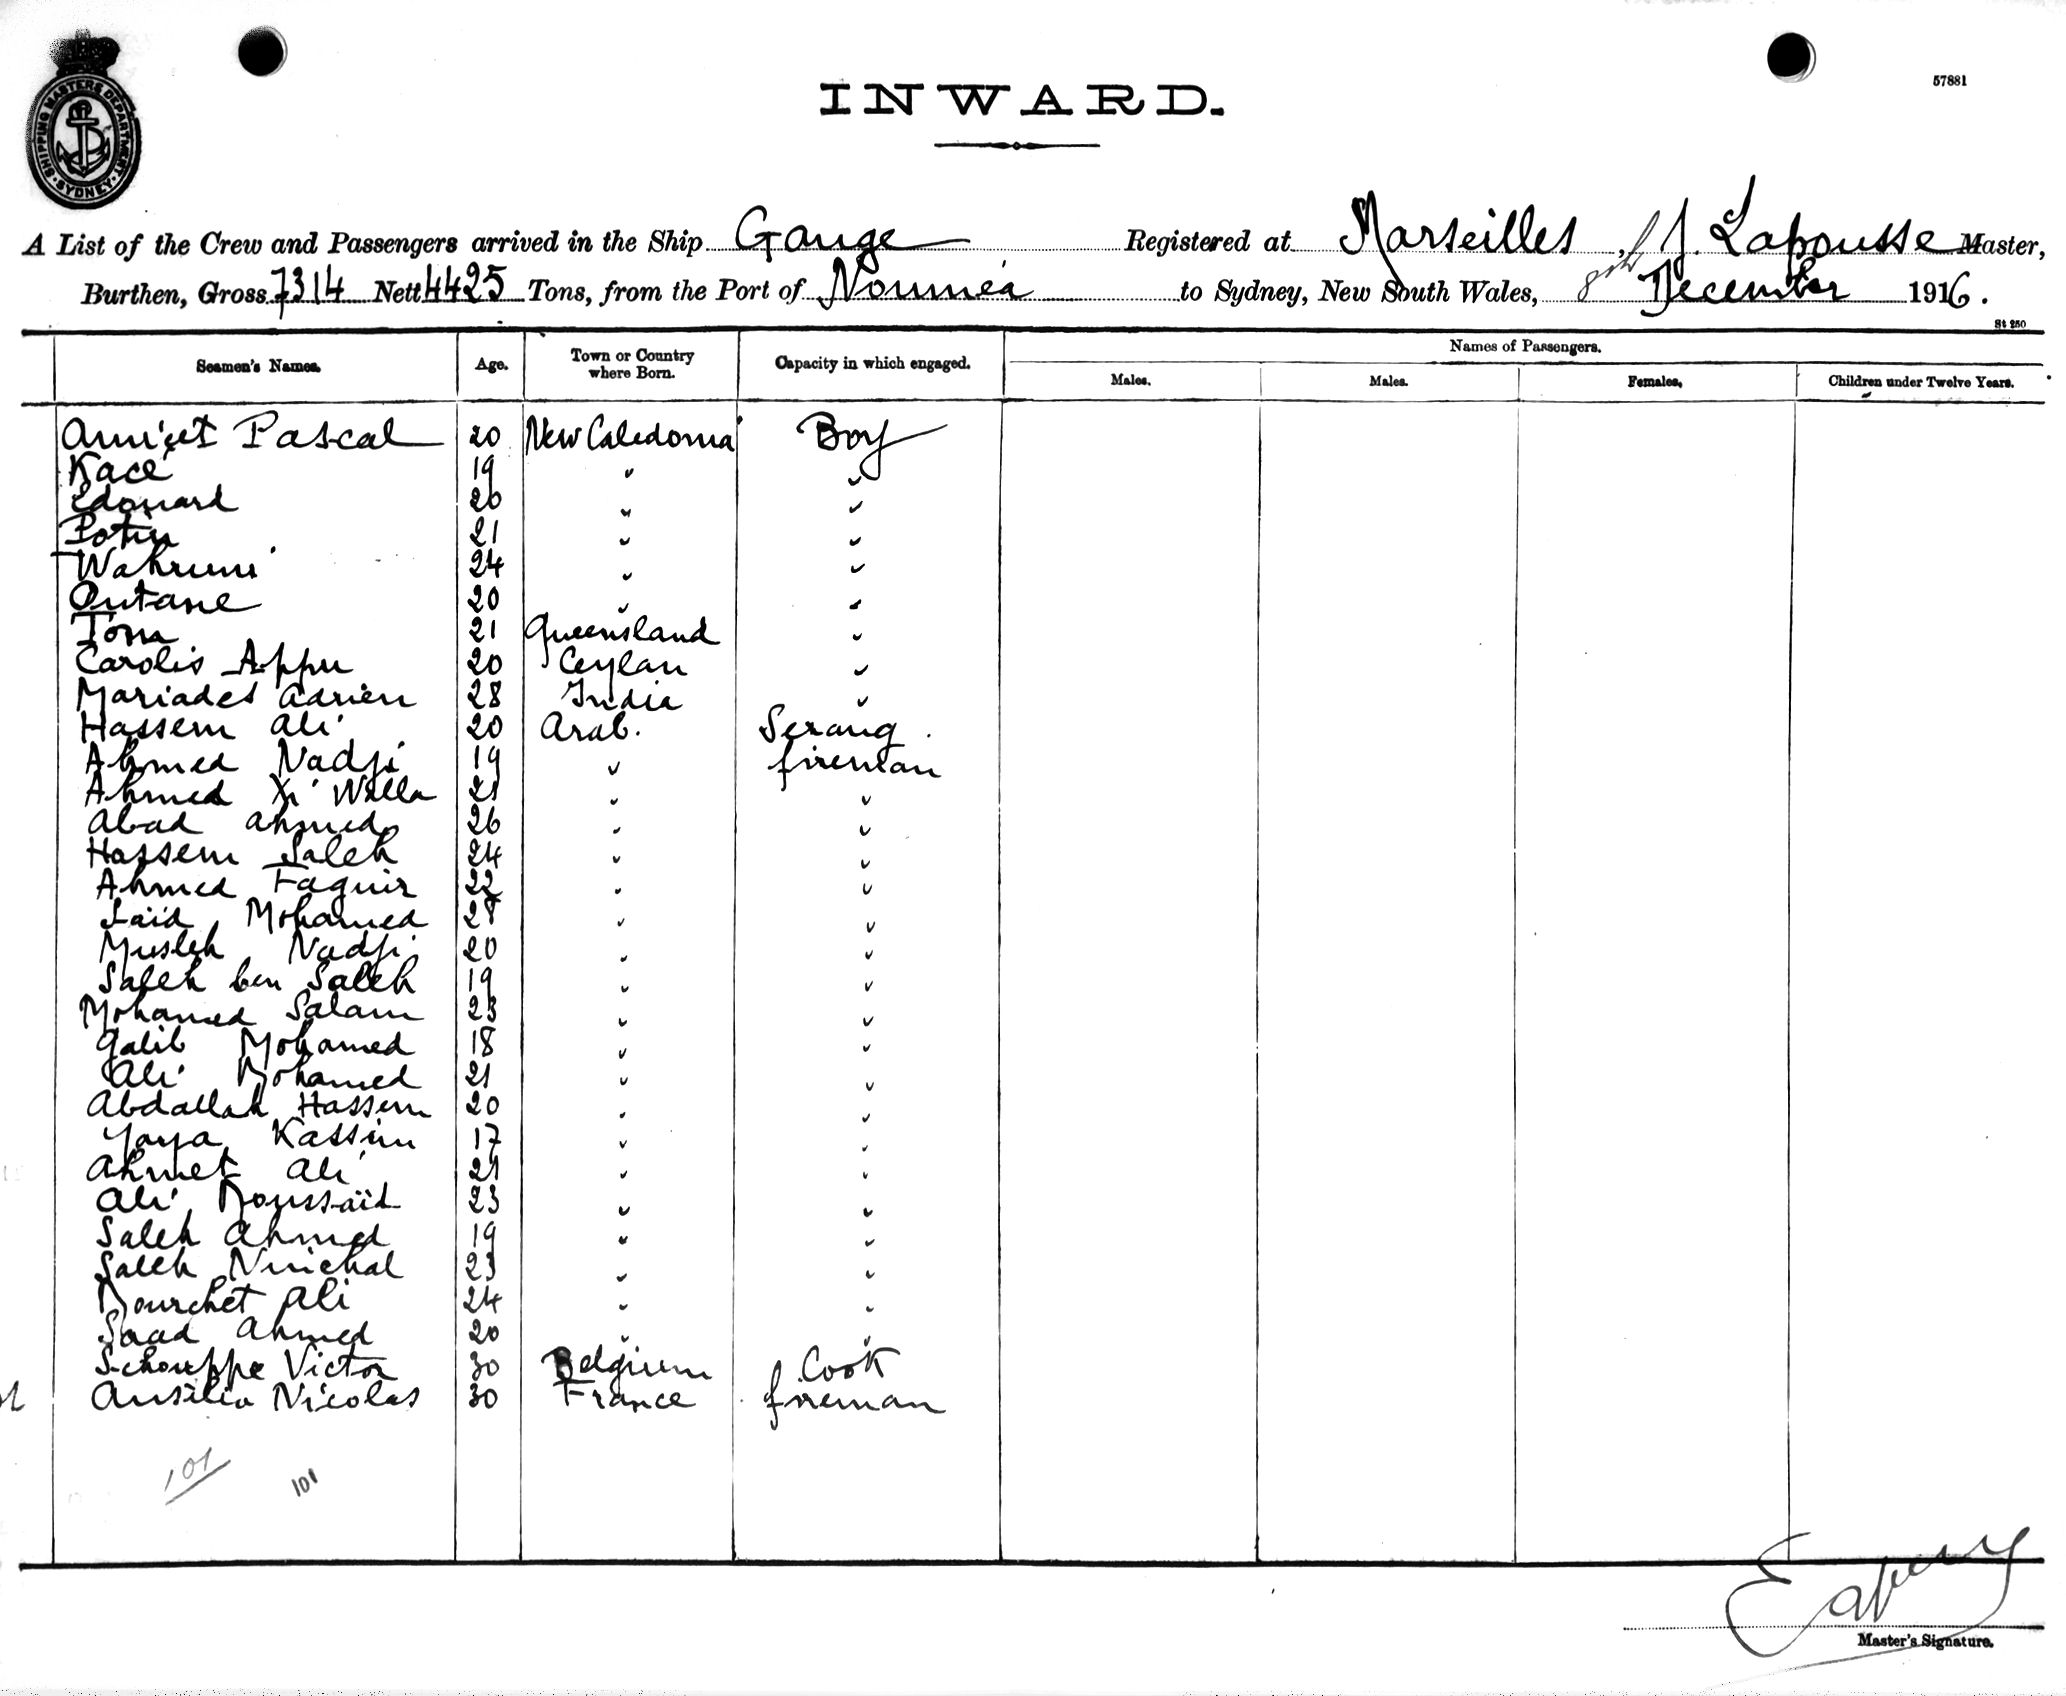 SHIPPING MASTERS DEPARTMENT SYDNEY
57881
INWARD.
A List of the Crew and Passengers arrived in the Ship Gange Registered at Marseilles, J. Lapousse Master,
Burthen, Gross 7314 Nett 4425 Tons, from the Port of Nouméa to Sydney, New South Wales, 8th December 1916.
St 250
Seamen's Names. Age. Town or Country where Born. Capacity in which engaged. Names of Passengers.
Males. Males. Females. Children under Twelve Years.
Pascal 20 New Caledonia Boy
Kacé 19 " "
Edouard 20 " "
Potin 21 " "
24 " "
Outane 20 " "
Tom 21 Queensland "
Carolis Appu 20 Ceylan "
Mariades Adrien 28 India "
Hassem Ali 20 Arab. Serang.
Ahmed Nadji 19 " fireman
Ahmed 21 " "
Abad Ahmed 26 " "
Hassem Saleh 24 " "
Ahmed Faguir 22 " "
Saïd Mohamed 28 " "
Musleh Nadji 20 " "
Saleh ben Saleh 19 " "
Mohamed Salam 23 " "
Galib Mohamed 18 " "
Ali Mohamed 21 " "
Abdallah Hassem 20 " "
Yaya Kassim 17 " "
Ahmet Ali 21 " "
Ali Moussaïd 23 " "
Saleh Ahmed 19 " "
Saleh 23 " "
Mourchet Ali 24 " "
Saad Ahmed 20 " "
Schouppe Victor 30 Belgium Cook
Ausilia Nicolas 30 France fireman
101 101
Master's Signature.